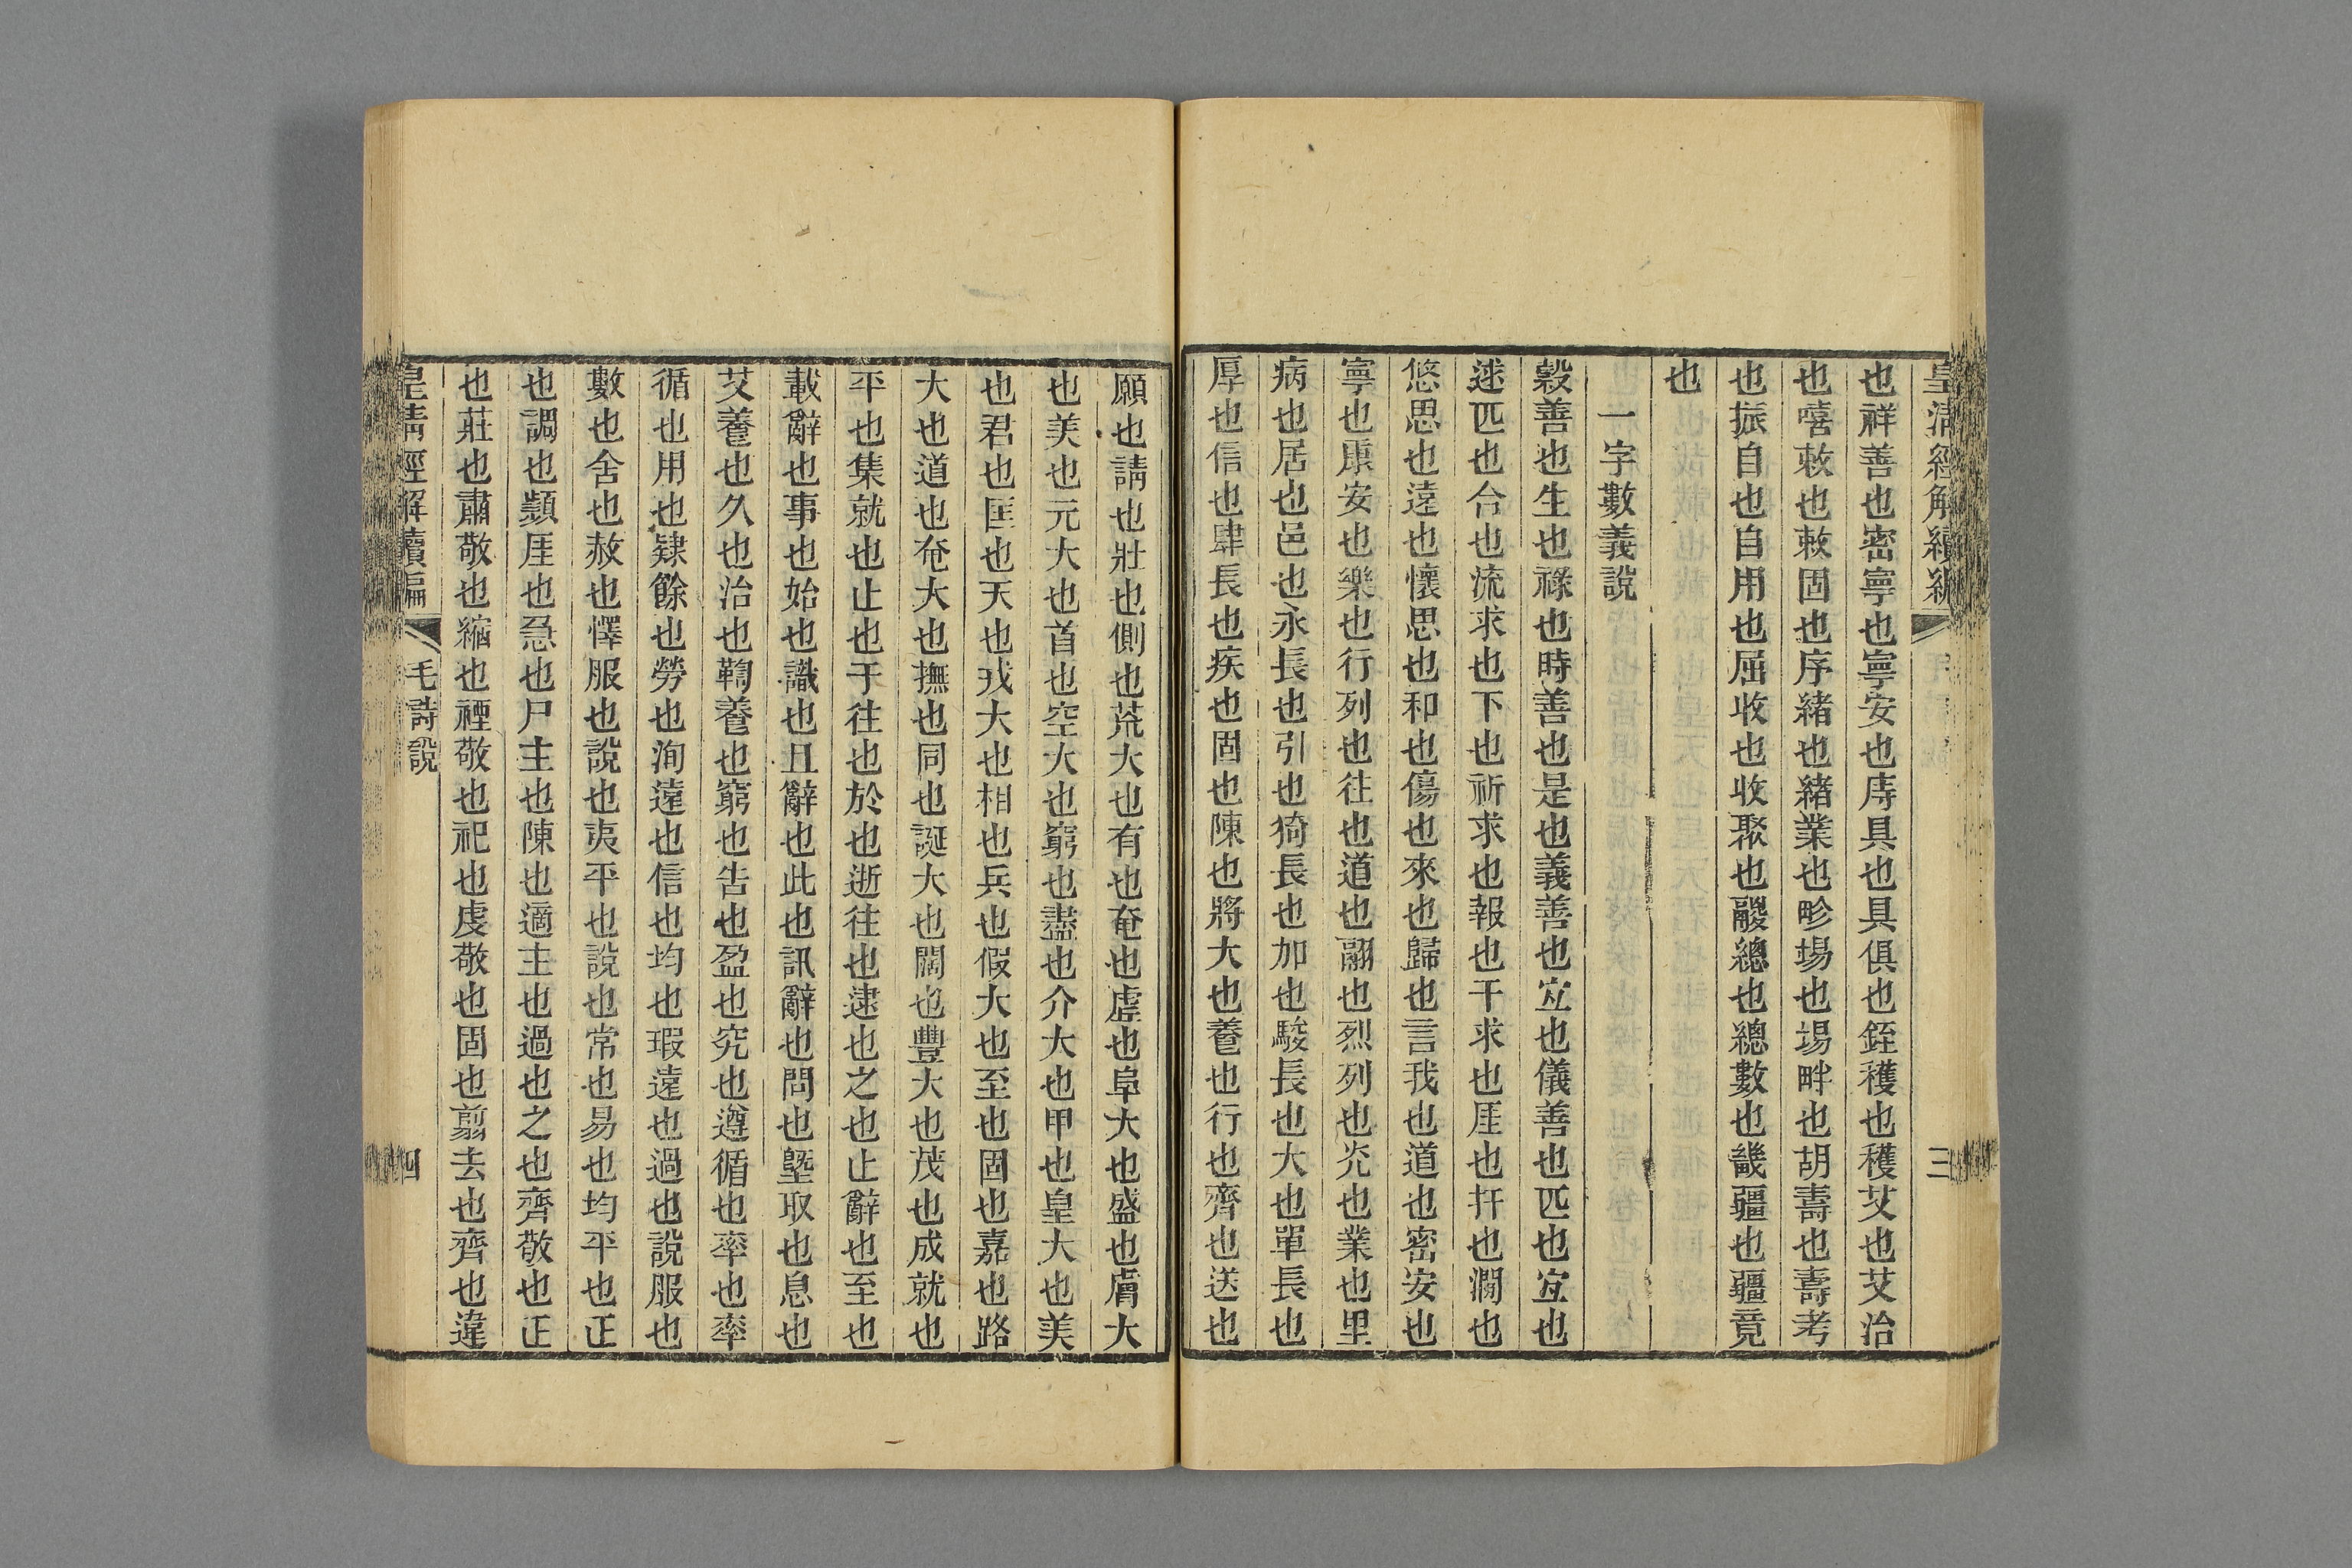 皇清經解續編
三
也祥善也密寧也寧安也庤具也具俱也銍穫也穫艾也艾治
也嘻敕也敕固也序緒也緒業也畛場也場畔也胡壽也壽考
也振自也自用也屈收也收聚也鬷總也總數也畿疆也疆竟
也
一字數義說
穀善也生也祿也時善也是也義善也宐也儀善也匹也宐也
逑匹也合也流求也下也祈求也報也干求也厓也扞也澗也
悠思也遠也懷思也和也傷也來也歸也言我也道也密安也
寧也康安也樂也行列也往也道也翮也烈列也光也業也里
病也居也邑也永長也引也猗長也加也駿長也大也單長也
厚也信也肆長也疾也固也陳也將大也養也行也齊也送也
願也請也壯也側也荒大也有也奄也虛也阜大也盛也膚大
也美也元大也首也空大也窮也盡也介大也甲也皇大也美
也君也匡也天也戎大也相也兵也假大也至也固也嘉也路
大也道也奄大也撫也同也誕大也闊也豐大也茂也成就也
平也集就也止也于往也於也逝往也逮也之也止辭也至也
載辭也事也始也識也且辭也此也訊辭也問也塈取也息也
艾養也久也治也鞫養也窮也告也盈也究也遵循也率也率
循也用也肄餘也勞也洵遠也信也均也瑕遠也過也說服也
數也舍也赦也懌服也說也夷平也說也常也易也均平也正
也調也顠厓也急也尸主也陳也適主也過也之也齊敬也正
也莊也肅敬也縮也禋敬也祀也虔敬也固也翦去也齊也違
皇清經解續編
毛詩說
四